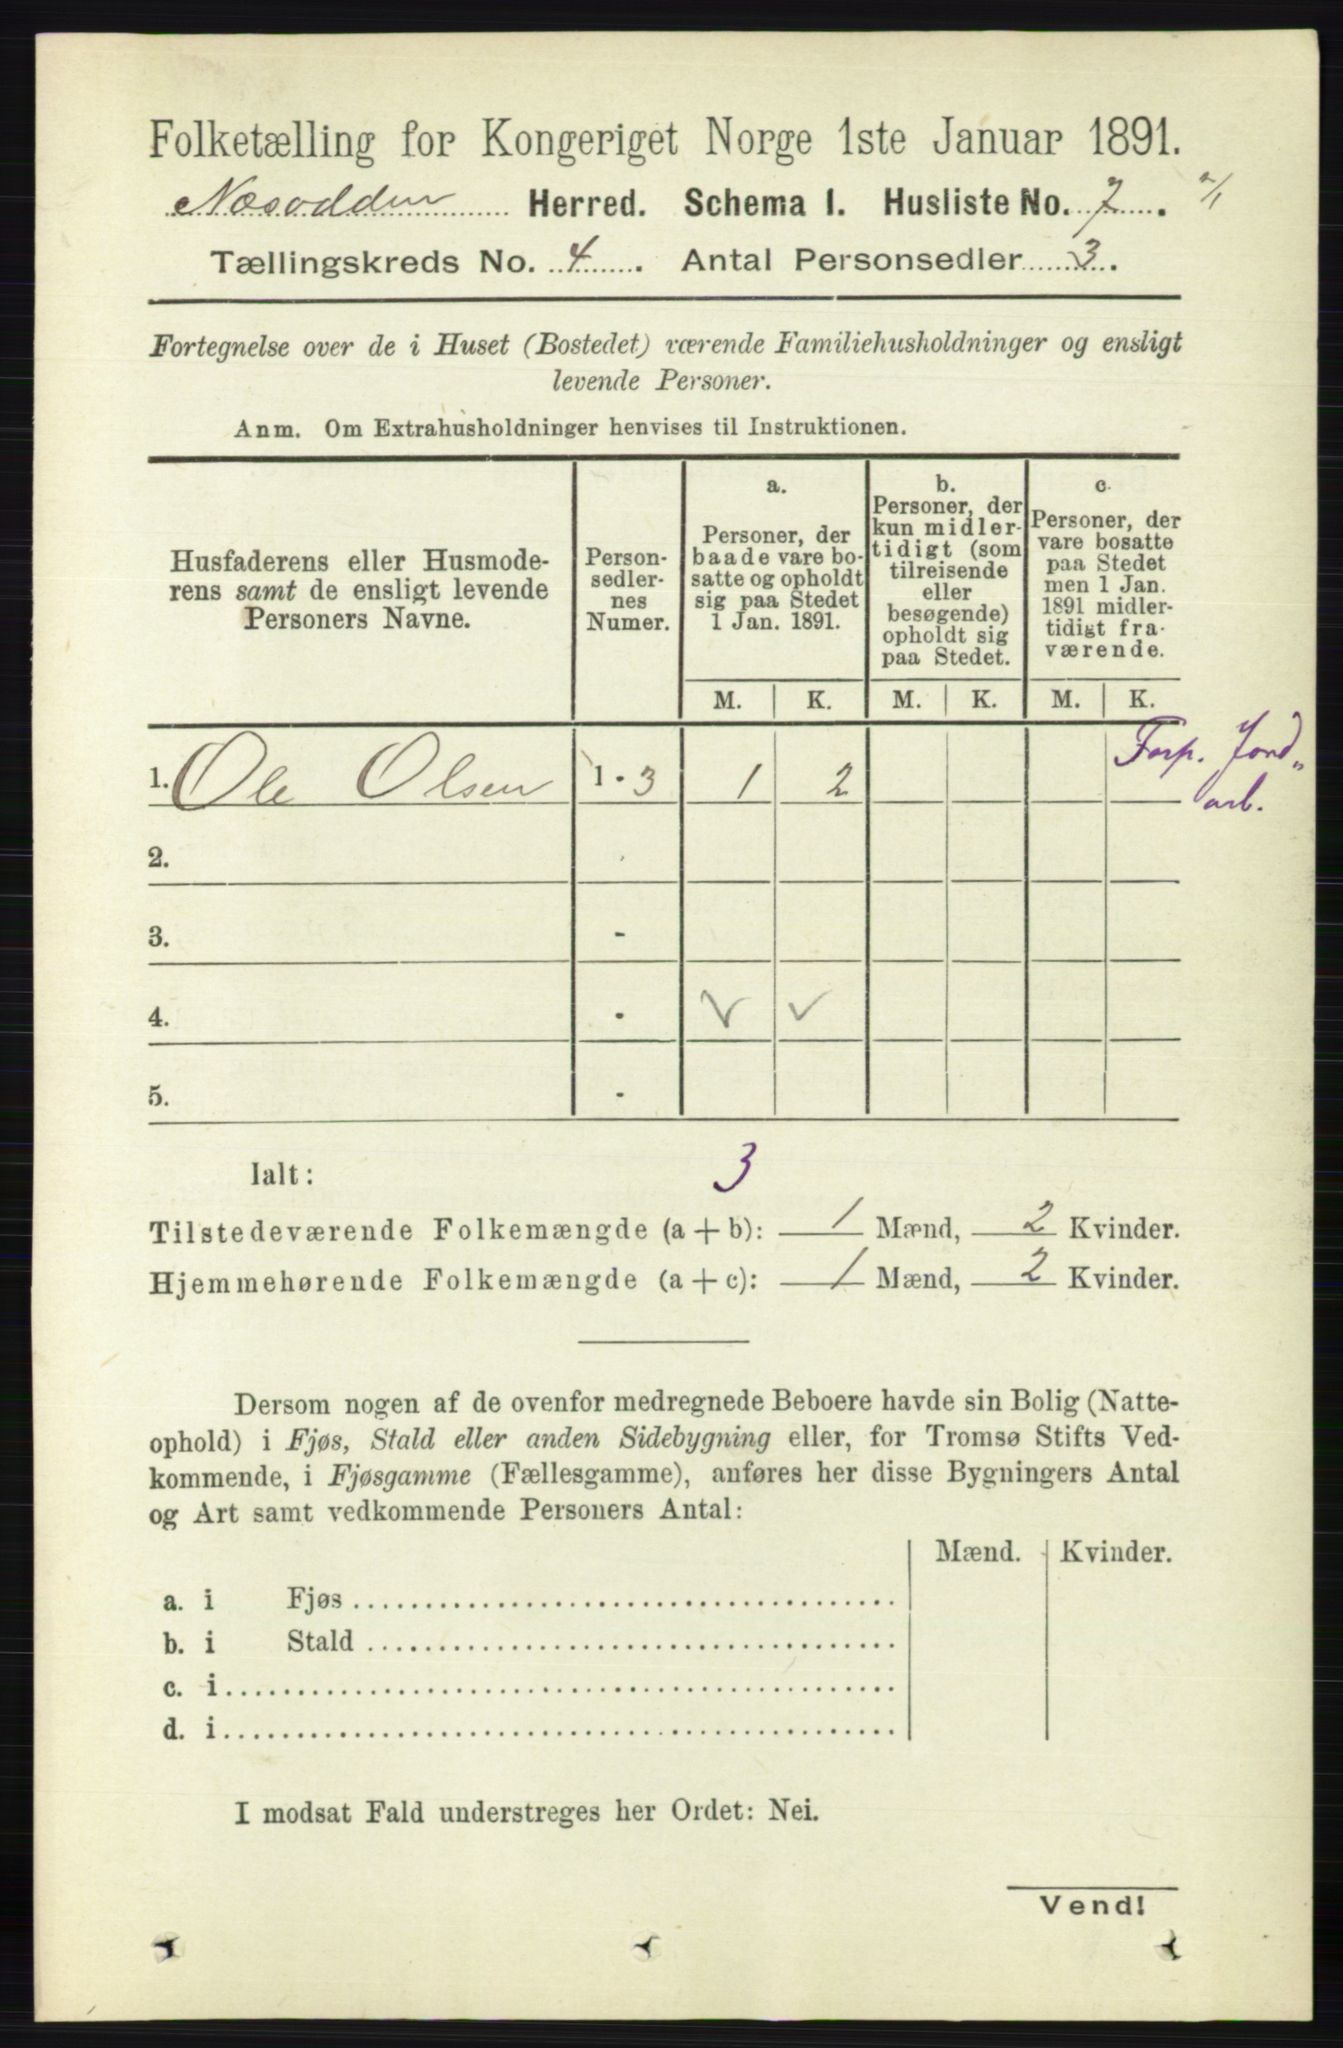 Folketælling for Kongeriget Norge 1ste Januar 1891.
Næsodden Herred. Schema I. Husliste No. 7. 2/1
Tællingskreds No. 4. Antal Personsedler 3.
Fortegnelse over de i Huset (Bostedet) værende Familiehusholdninger og ensligt
levende Personer.
Anm. Om Extrahusholdninger henvises til Instruktionen.
Husfaderens eller Husmode-
rens samt de ensligt levende
Personers Navne.
Person-
sedler-
nes
Numer.
a.
Personer, der
baade vare bo-
satte og opholdt
sig paa Stedet
1 Jan. 1891.
b.
Personer, der
kun midler-
tidigt (som
tilreisende
eller
besøgende)
opholdt sig
paa Stedet.
c.
Personer, der
vare bosatte
paa Stedet
men 1 Jan.
1891 midler-
tidigt fra-
værende.
M. K. M. K. M. K.
1. Ole Olsen 1 - 3 1 2 Forp. Jord-
arb.
2.
3. -
4. - ✓ ✓
5. -
Ialt: 3
Tilstedeværende Folkemængde (a + b): 1 Mænd, 2 Kvinder.
Hjemmehørende Folkemængde (a + c): 1 Mænd, 2 Kvinder.
Dersom nogen af de ovenfor medregnede Beboere havde sin Bolig (Natte-
ophold) i Fjøs, Stald eller anden Sidebygning eller, for Tromsø Stifts Ved-
kommende, i Fjøsgamme (Fællesgamme), anføres her disse Bygningers Antal
og Art samt vedkommende Personers Antal:
Mænd. Kvinder.
a. i Fjøs
b. i Stald
c. i
d. i
I modsat Fald understreges her Ordet: Nei.
Vend!